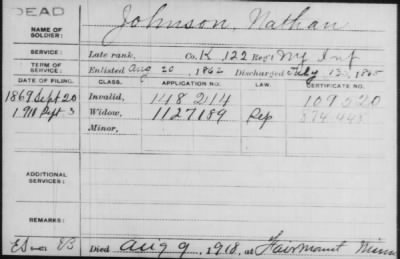 DEAD
NAME OF SOLDIER: Johnson, Nathan
SERVICE: Late rank, Co. K, 122 Reg't Ny Inf
TERM OF SERVICE: Enlisted Aug 20, 1862 Discharged July 1865
DATE OF FILING. CLASS. APPLICATION NO. LAW. CERTIFICATE NO.
1869 Sept 20 Invalid, 148214 109220
1918 Sept 3 Widow, 1127189 Rep 874445
Minor,
ADDITIONAL SERVICES:
REMARKS:
Died Aug 9, 1918, at Fairmount Minn